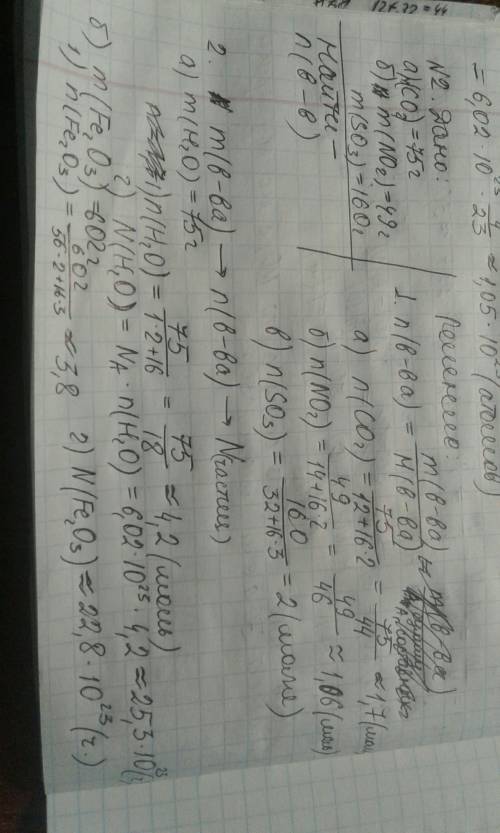 12+32=44
= 6,02 · 10²³ · 4/23 ≈ 1,05 · 10²³ (атомов)
N2. Дано:
а) (CO₂) = 75г
б) m(NO₂) = 49г
m(SO₃) = 160г
Найти –
n(в-в)
Решение:
1. n(в-ва) = m(в-ва) / M(в-ва)
а) n(CO₂) = 75 / 12+16·2 = 75 / 44 ≈ 1,7 (моль)
б) n(NO₂) = 49 / 14+16·2 = 49 / 46 ≈ 1,06 (моль)
в) n(SO₃) = 160 / 32+16·3 = 2 (моль)
2. m(в-ва) → n(в-ва) → Nчастиц
а) m(H₂O) = 75г
1) n(H₂O) = 75 / 1·2+16 = 75 / 18 ≈ 4,2 (моль)
2) N(H₂O) = Nᴀ · n(H₂O) = 6,02·10²³ · 4,2 ≈ 25,3·10²³
б) m(Fe₂O₃) = 602г
1) n(Fe₂O₃) = 602 / 56·2+16·3 ≈ 3,8 2) N(Fe₂O₃) ≈ 22,8 · 10²³ (ч.)